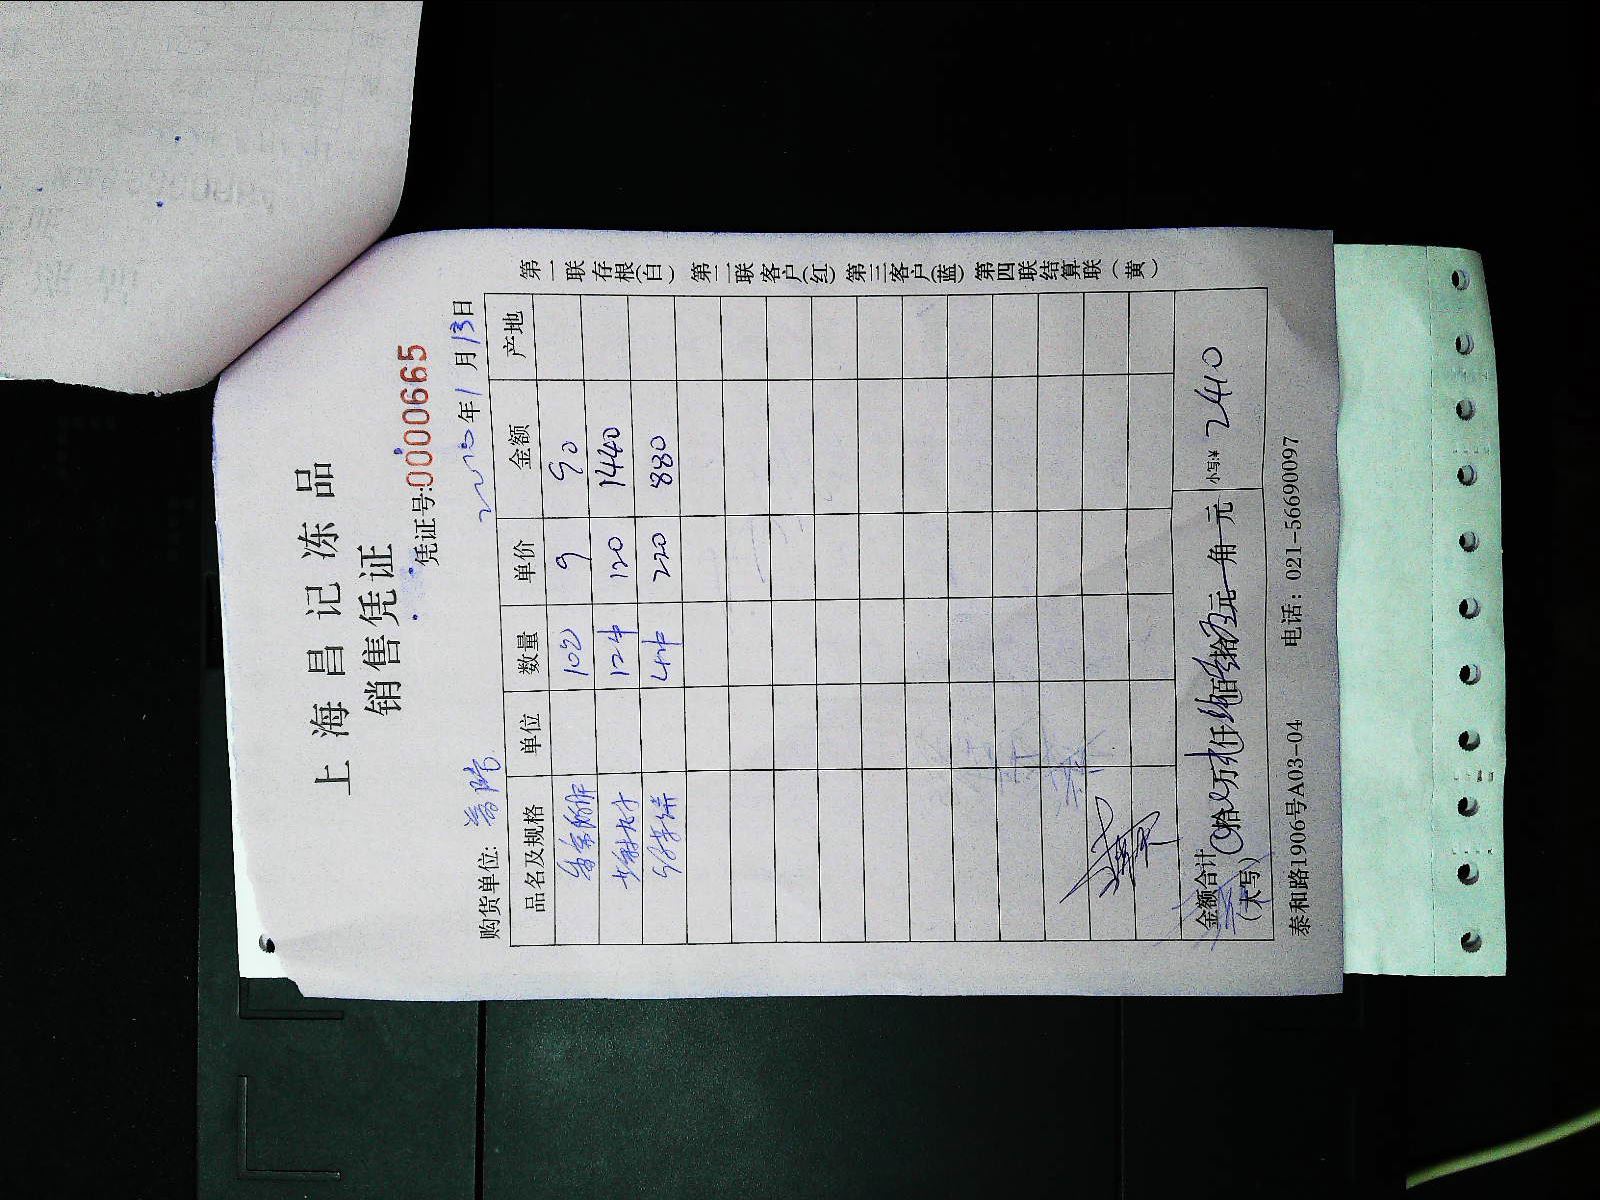 上海昌记冻品
销售凭证
凭证号:0000665
2020年1月13日
购货单位:
品名及规格 单位 数量 单价 金额 产地
10 9 90
12件 120 1440
4件 220 880
金额合计
(大写) 拾 万 仟 佰 拾 元 角 元 小写:¥ 2410
泰和路1906号A03-04 电话：021-56690097
第一联存根(白) 第二联客户(红) 第三客户(蓝) 第四联结算联(黄)